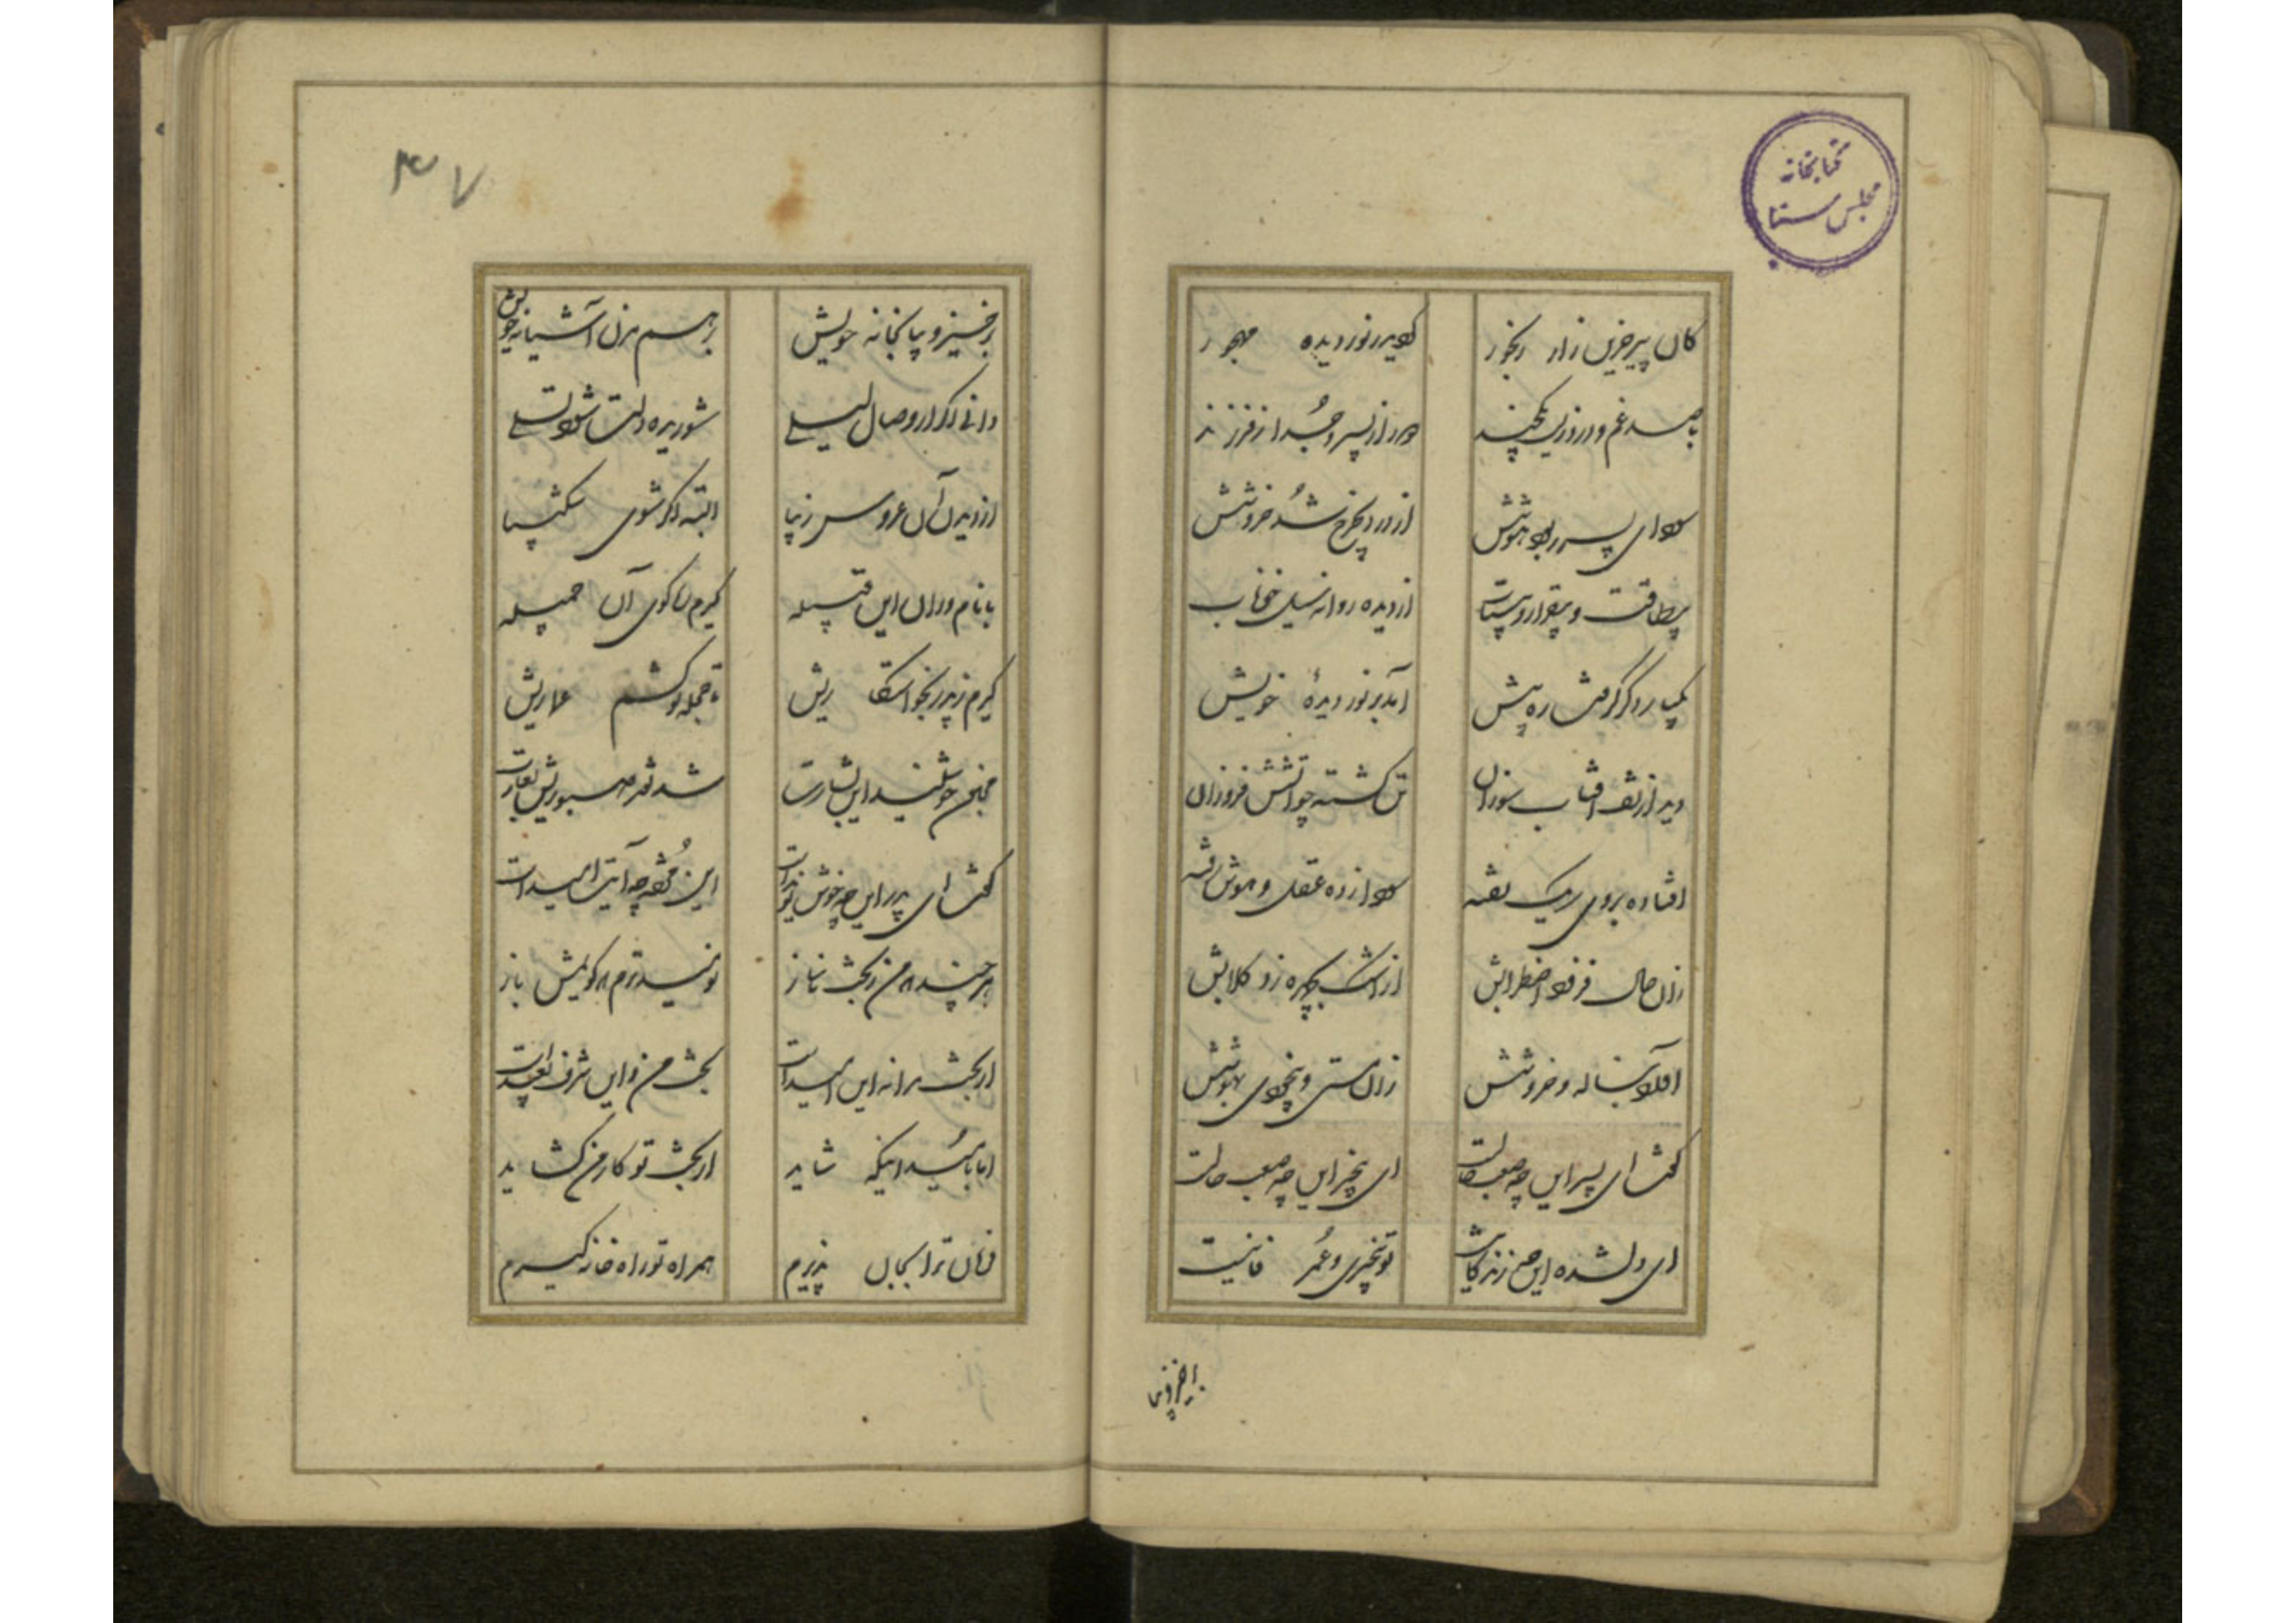 کتابخانه
مجلس سنا
کان پیر حزین زار رنجور کو بر نور دیده مهجور
با صد غم و درد زیر یکچند دور از پسر و جدا ز فرزند
ای پسر هوشش از درد بچرخ شد خروشش
بیطاقت و بیقرار و بیتاب از دیده روانه سیل خوناب
یکبار دگر گرفت ره پیش آمد بر نور دیدهٔ خویش
دید از تف آفتاب سوزان تن گشته چو آتش فروزان
افتاده بروی ریک تفته از ده عقل و هوش رفته
زان حال فزود اضطرابش از اشک بچهره زد گلابش
آمد بناله و خروشش زان مستی و بیخودی بهوشش
گفت ای پسر این چه صعب حالست ای بیخبر این چه صعب حالست
ای دلشده این چه زندگانیست تو بیخبری و عمر فانیست
برخیز و
۳۷
برخیز و بیا بخانه خویش بر هم مزن آشیانه خویش
دانی اگر از وصال لیلی شوریده دلت شود تسلی
از دیدن آن عروس زیبا البته اگر شوی شکیبا
با نام وران این قبیله گیرم ره کوی آن جمیله
گیرم ز پدر بخواستگاریش تا حجله تو کشم عماریش
مجنون چو شنید این بشارت شد نقد صبوریش بغارت
گفت ای پدر این چه خوش نویدست این مژده چه آیت امیدست
هر چند که من ز بخت ناساز نومیدترم ز کویش باز
از بخت مرا نه این امیدست بخت من و این شرف بعیدست
اما بامید اینکه شاید از بخت تو کار من گشاید
فرمان ترا بجان پذیرم همراه تو راه خانه گیرم